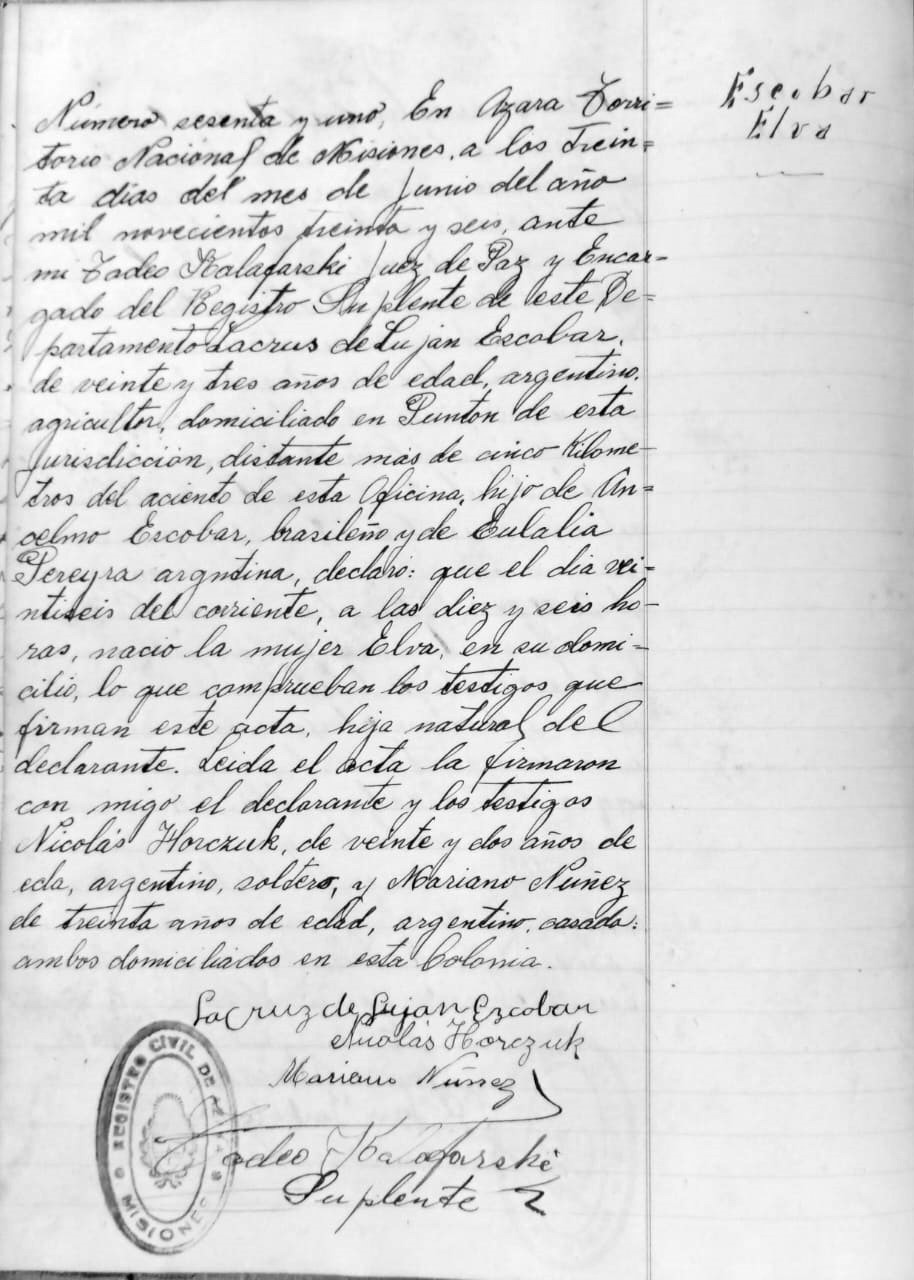 Número sesenta y uno, En Azara Terri=
torio Nacional de Misiones, a los trein=
ta días del mes de Junio del año
mil novecientos treinta y seis, ante
mi Tadeo Kalafarski Juez de Paz y Encar=
gado del Registro Suplente de este De=
partamento Lacrus de Luján Escobar,
de veinte y tres años de edad, argentino,
agricultor, domiciliado en Punton de esta
Jurisdicción, distante más de cinco Kilome=
tros del aciento de esta Oficina, hijo de An=
celmo Escobar, brasileño y de Eulalia
Pereyra argntina, declaró: que el día vei=
ntiseis del corriente, a las diez y seis ho=
ras, nació la mujer Elva, en su domi=
cilio, lo que comprueban los testigos que
firman este acta, hija natural del
declarante. Leida el acta la firmaron
con migo el declarante y los testigos
Nicolás Horczuk, de veinte y dos años de
eda, argentino, soltero, y Mariano Nuñez
de treinta años de edad, argentino, casado:
ambos domiciliados en esta Colonia.
LaCruz de Lujan Ezcobar
Nicolás Horczuk
Mariano Núnez
Tadeo Kalafarski
Suplente
Escobar
Elva
REGISTRO CIVIL DE
MISIONES